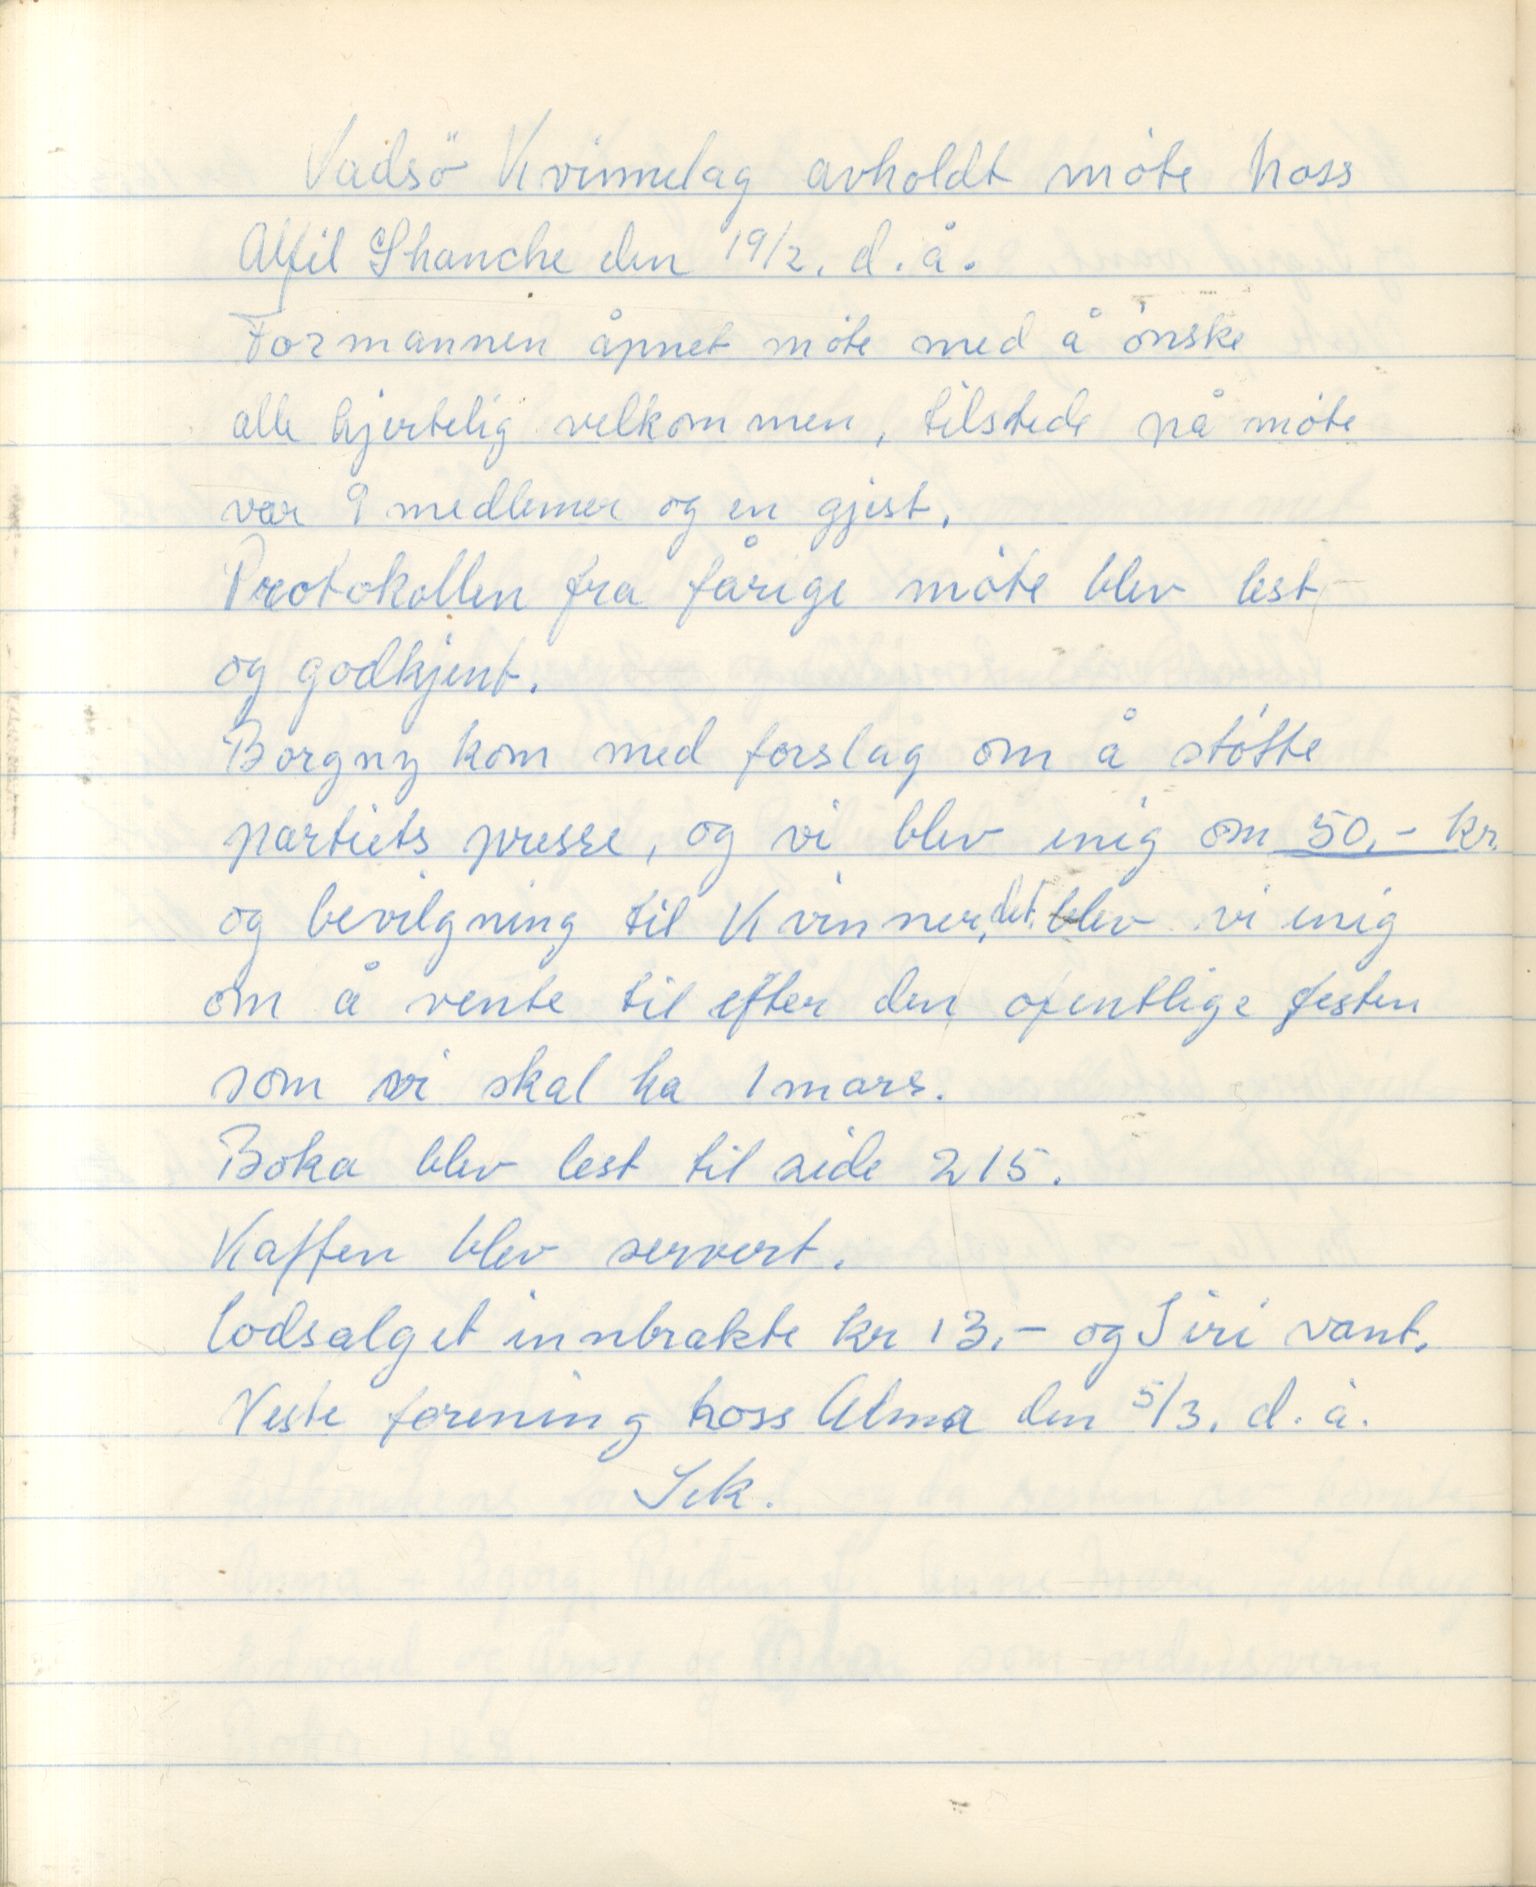 Vadsö Kvinnelag avholdt móte hoss
Alfil Skanche den 19/2. d. å.
Formannen åpnet móte med å ónske
alle hjertelig velkommen, tilstede på móte
var 9 medlemer og en gjest.
Protokollen fra fårige móte blev lest
og godkjent.
Borgny kom med forslag om å stótte
partiets presse, og vi blev enig om 50,- kr.
og bevilgning til Kvinner, det blev vi enig
om å vente til efter den ofentlige festen
som vi skal ha 1 mars.
Boka blev lest til side 215.
Kaffen blev servert.
Lodsalget innbrakte kr 13,- og Siri vant.
Neste forening hoss Alma den 5/3. d. å.
Sek.